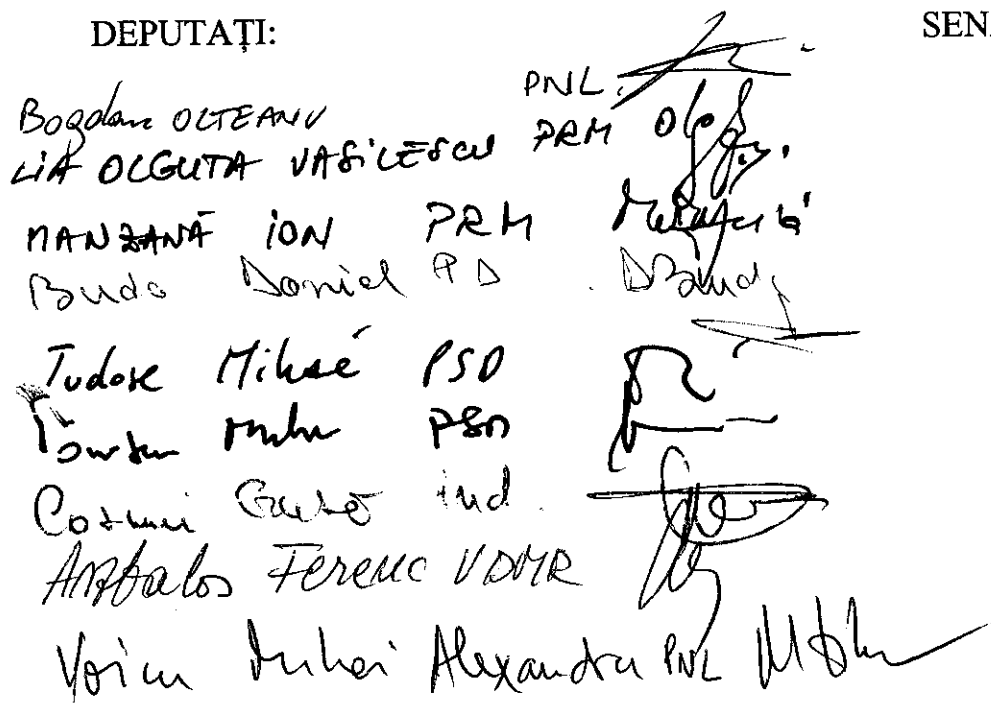 DEPUTAȚI: SEN
Bogdan OLTEANU PNL.
LIA OLGUTA VASILESCU PRM
MANZANĂ ION PRM
Buda Daniel PD DBuda
Tudose Mihai PSD
PSD
Cosmin Gușă ind.
Ferenc UDMR
Voicu Mihai Alexandru PNL